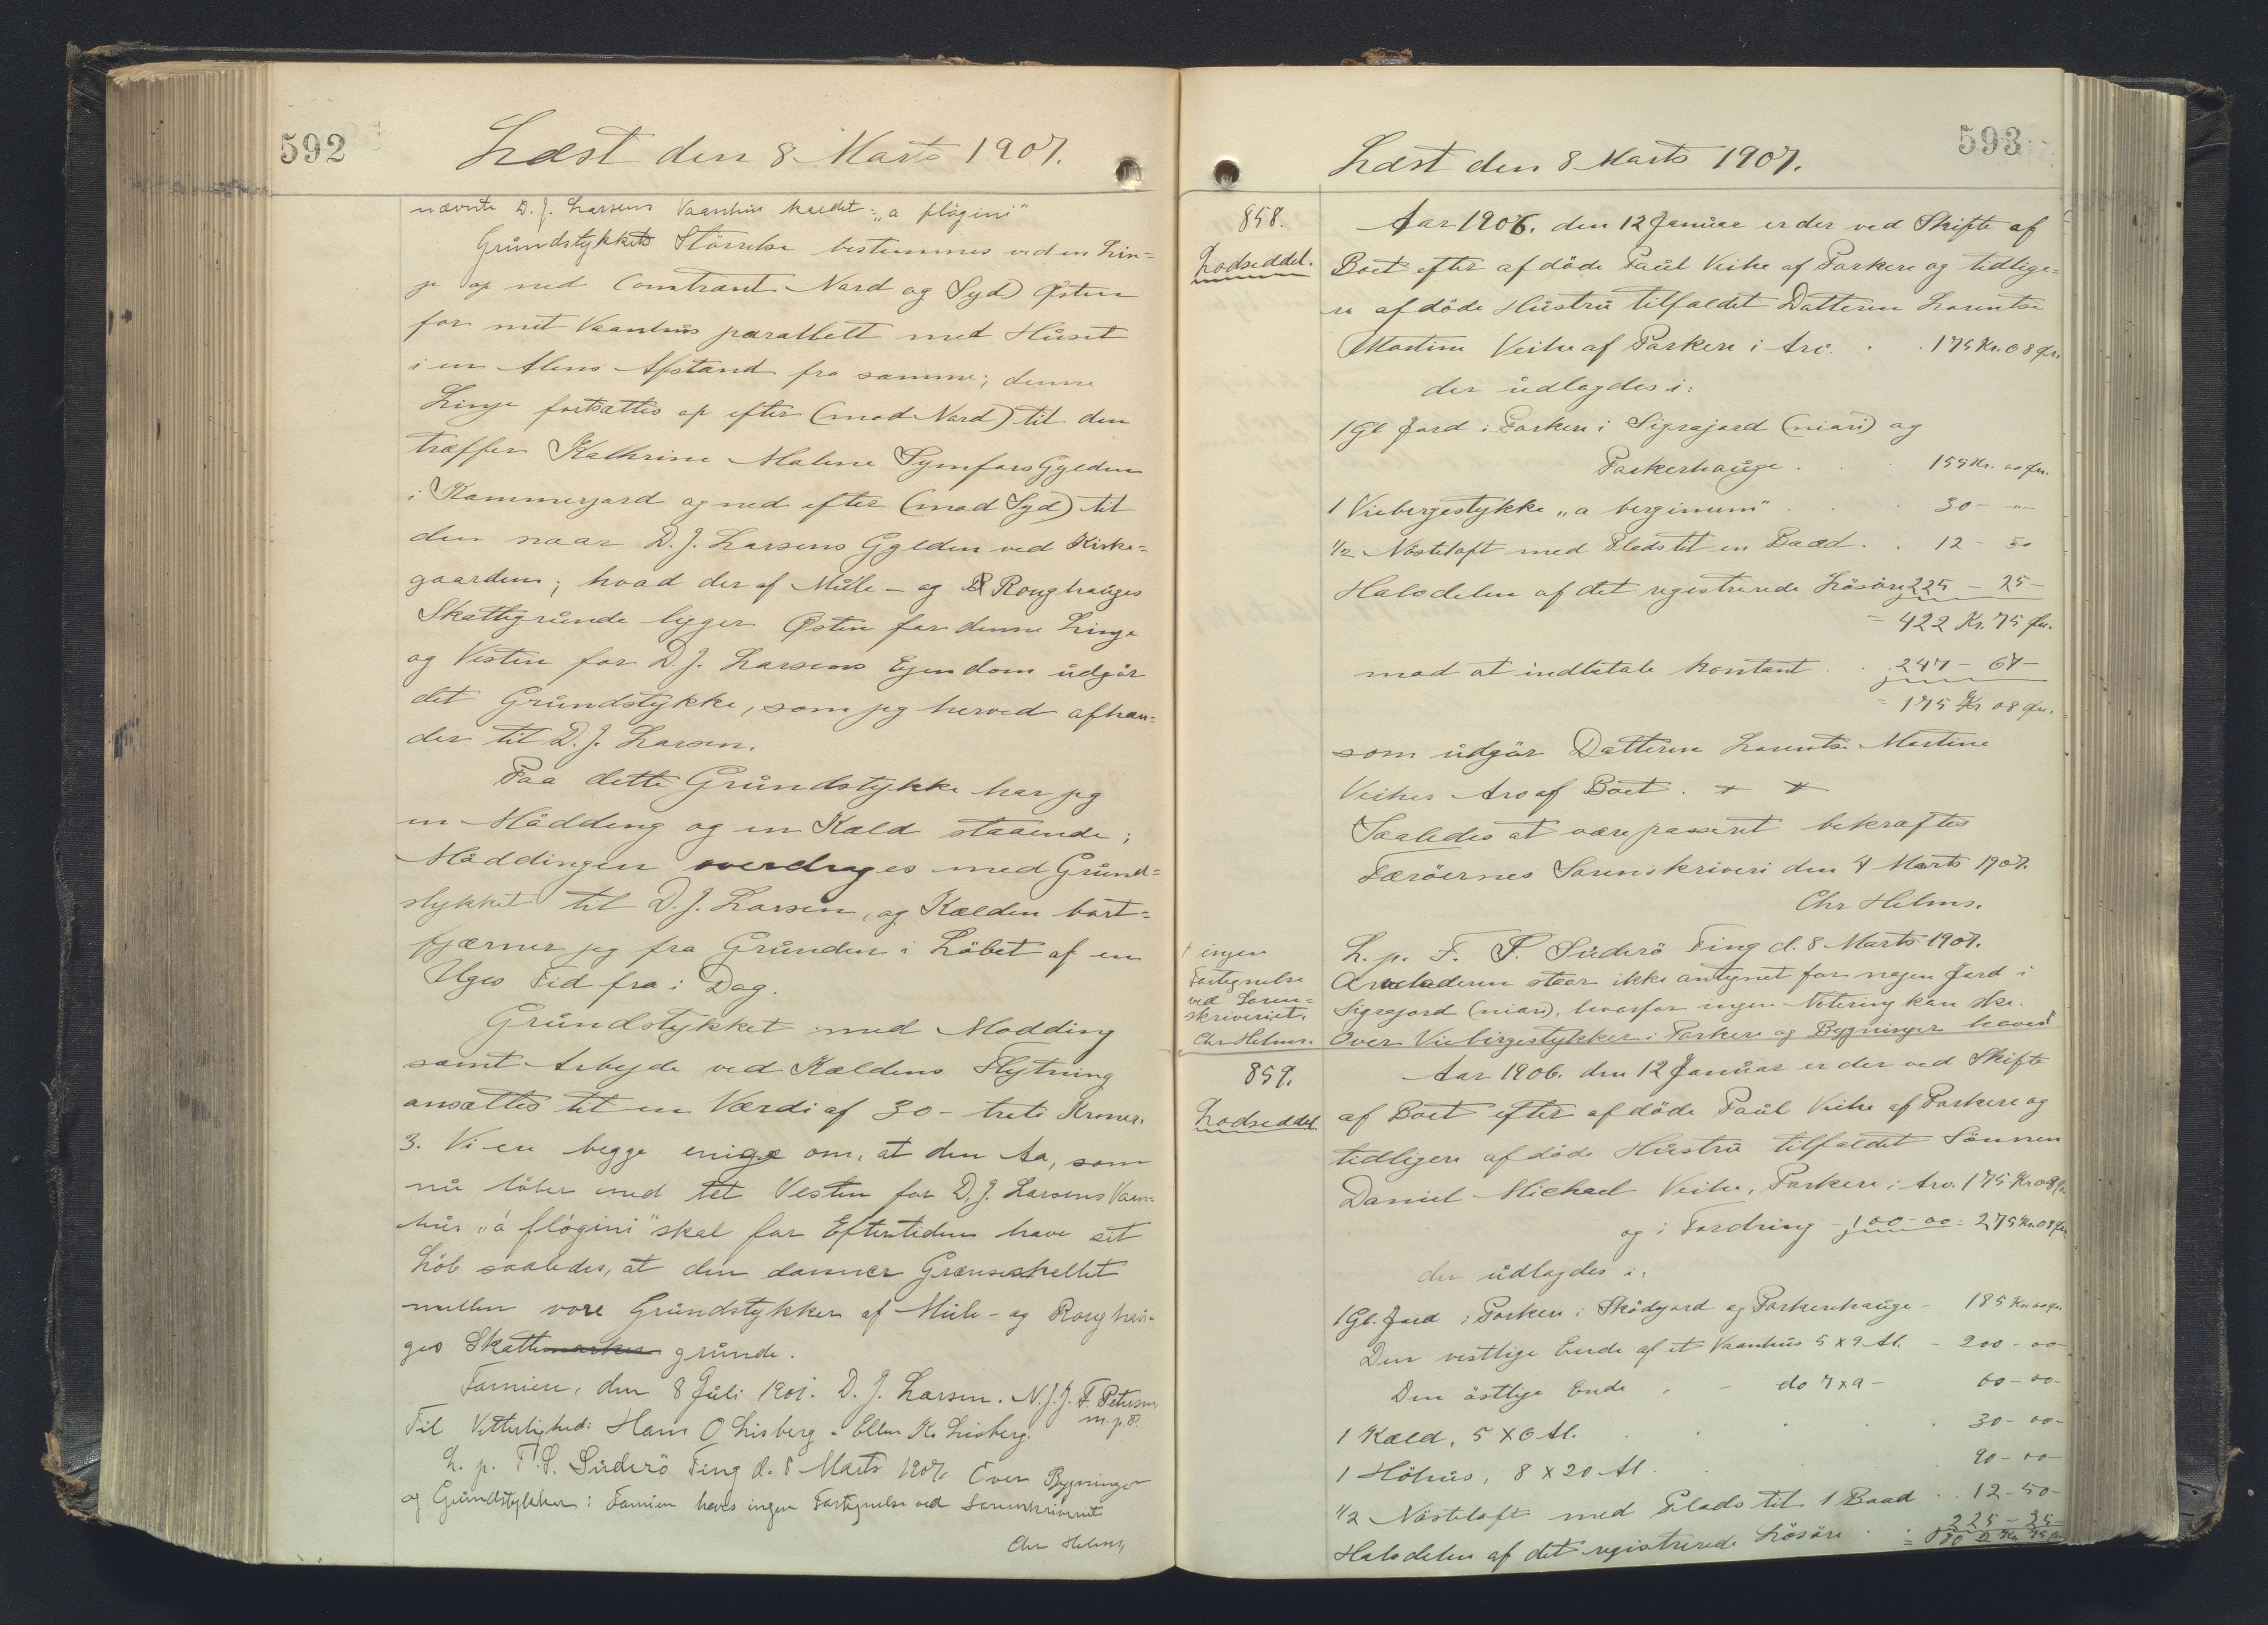 592
Læst den 8 Marts 1907.
nævnte D. J. Larsens Vaanhus kaldet: „a flögini"
Grundstykkets Störrelse bestemmes ved en Lin=
je op ned Contrant Nord og Syd Östen
for mit Vaanhus parallelt med Huset
i en Alens Afstand fra samme; denne
Linje fortsættes op efter (mod Nord) til den
træffer Kathrine Malene Symfors Gylden
i Kammerjord og ned efter (mod Syd) til
den naar D. J. Larsens Gylden ved Kirke=
gaarden; hvad der af Mille- og Roughauges
Skattegrunde ligger Østen for denne Linje
og Vesten for D. J. Larsens Ejendom udgör
det Grundstykke, som jeg herved afhæn=
der til D. J. Larsen.
Paa dette Grundstykke har jeg
en Mödding og en Kæld staaende;
Möddingen overdrages med Grund=
stykket til D. J. Larsen, og Kælden bort=
fjærner jeg fra Grunden i Löbet af en
Uges Tid fra i Dag.
Grundstykket med Modding
samt Arbejde ved Kældens Flytning
ansættes til en Værdi af 30 - treti Kroner.
3. Vi ere begge enige om, at den Aa, som
nu löber ned tet Vesten for D. J. Larsens Vaan=
hus „á flögini" skal for Eftertiden have sit
Löb saaledes, at den danner Grænseskellet
mellem vore Grundstykker af Mile- og Roughau-
ges Skattemarker grunde.
Famien, den 8 Juli 1901. D. J. Larsen. N. J. J. F. Petersen
m. p. P.
Til Vitterlighed: Hans O Lisberg - Ellen K. Lisberg.
L. p. F. S. Suderö Ting d. 8 Marts 1907. Over Bygninger
og Grundstykker i Famien haves ingen Fortegnelse ved Sorenskriveriet
Chr Helms,
593
Læst den 8 Marts 1907.
858.
Lodseddel.
Aar 1906. den 12 Januar er der ved Skifte af
Boet efter afdöde Paul Veihe af Porkere og tidlige=
re afdöde Hustru tilfaldet Datteren Lorentse
Martine Veihe af Porkere i Arv. . . 175 Kr. 08 Öre
der udlagdes i:
1 Gl Jord i Porkere i Sigrajord (niari) og
Porkerhauge . . . 155 Kr. 00 Öre.
1 Viebergestykke „a berginum" . . . 30 - „ -
1/2 Nösteloft med Plads til en Baad . . 12 - 50
Halvdelen af det registrerede Lösöre 225 - 25 -
= 422 Kr. 75 Öre.
mod at indbetale kontant . . 247 - 67 -
= 175 Kr 08 Öre.
som udgör Datteren Lorentse Martine
Veihes Arv af Boet.
Saaledes at være passeret bekræftes
Færöernes Sorenskriveri den 4 Marts 1907.
Chr Helms.
L. p. F. S. Suderö Ting d. 8 Marts 1907.
Arveladeren staar ikke antegnet for nogen Jord i
Sigrajord (niari), hvorfor ingen Notering kan ske.
Over Viebirgestykker i Porkere og Bygninger haves †
† ingen
Fortegnelse
ved Soren=
skriveriet.
Chr Helms.
859.
Lodseddel.
Aar 1906. den 12 Januar er der ved Skifte
af Boet efter afdöde Paul Veihe af Porkere og
tidligere afdöde Hustru tilfaldet Sönnen
Daniel Michael Veihe, Porkere i Arv. 175 Kr 08 Ö.
og i Fordring - 100 - 00 = 275 Kr. 08 Öre
der udlagdes i:
1 Gl. Jord i Porkere i Sködgord og Porkerehauge - 185 Kr. 00 Öre
Den vestlige Ende af et Vaanhus 5 x 9 Al. - 200 - 00
Den östlige Ende „ - do 7 x 9 - 60 - 00 -
1 Kæld, 5 x 6 Al. . . . 30 - 00 -
1 Höhus, 8 x 20 Al . . . 90 - 00 -
1/2 Nösteloft med Plads til 1 Baad . . 12 - 50 -
Halvdelen af det registrerede Lösöre . . 225 - 25 -
= 802 Kr 75 Öre